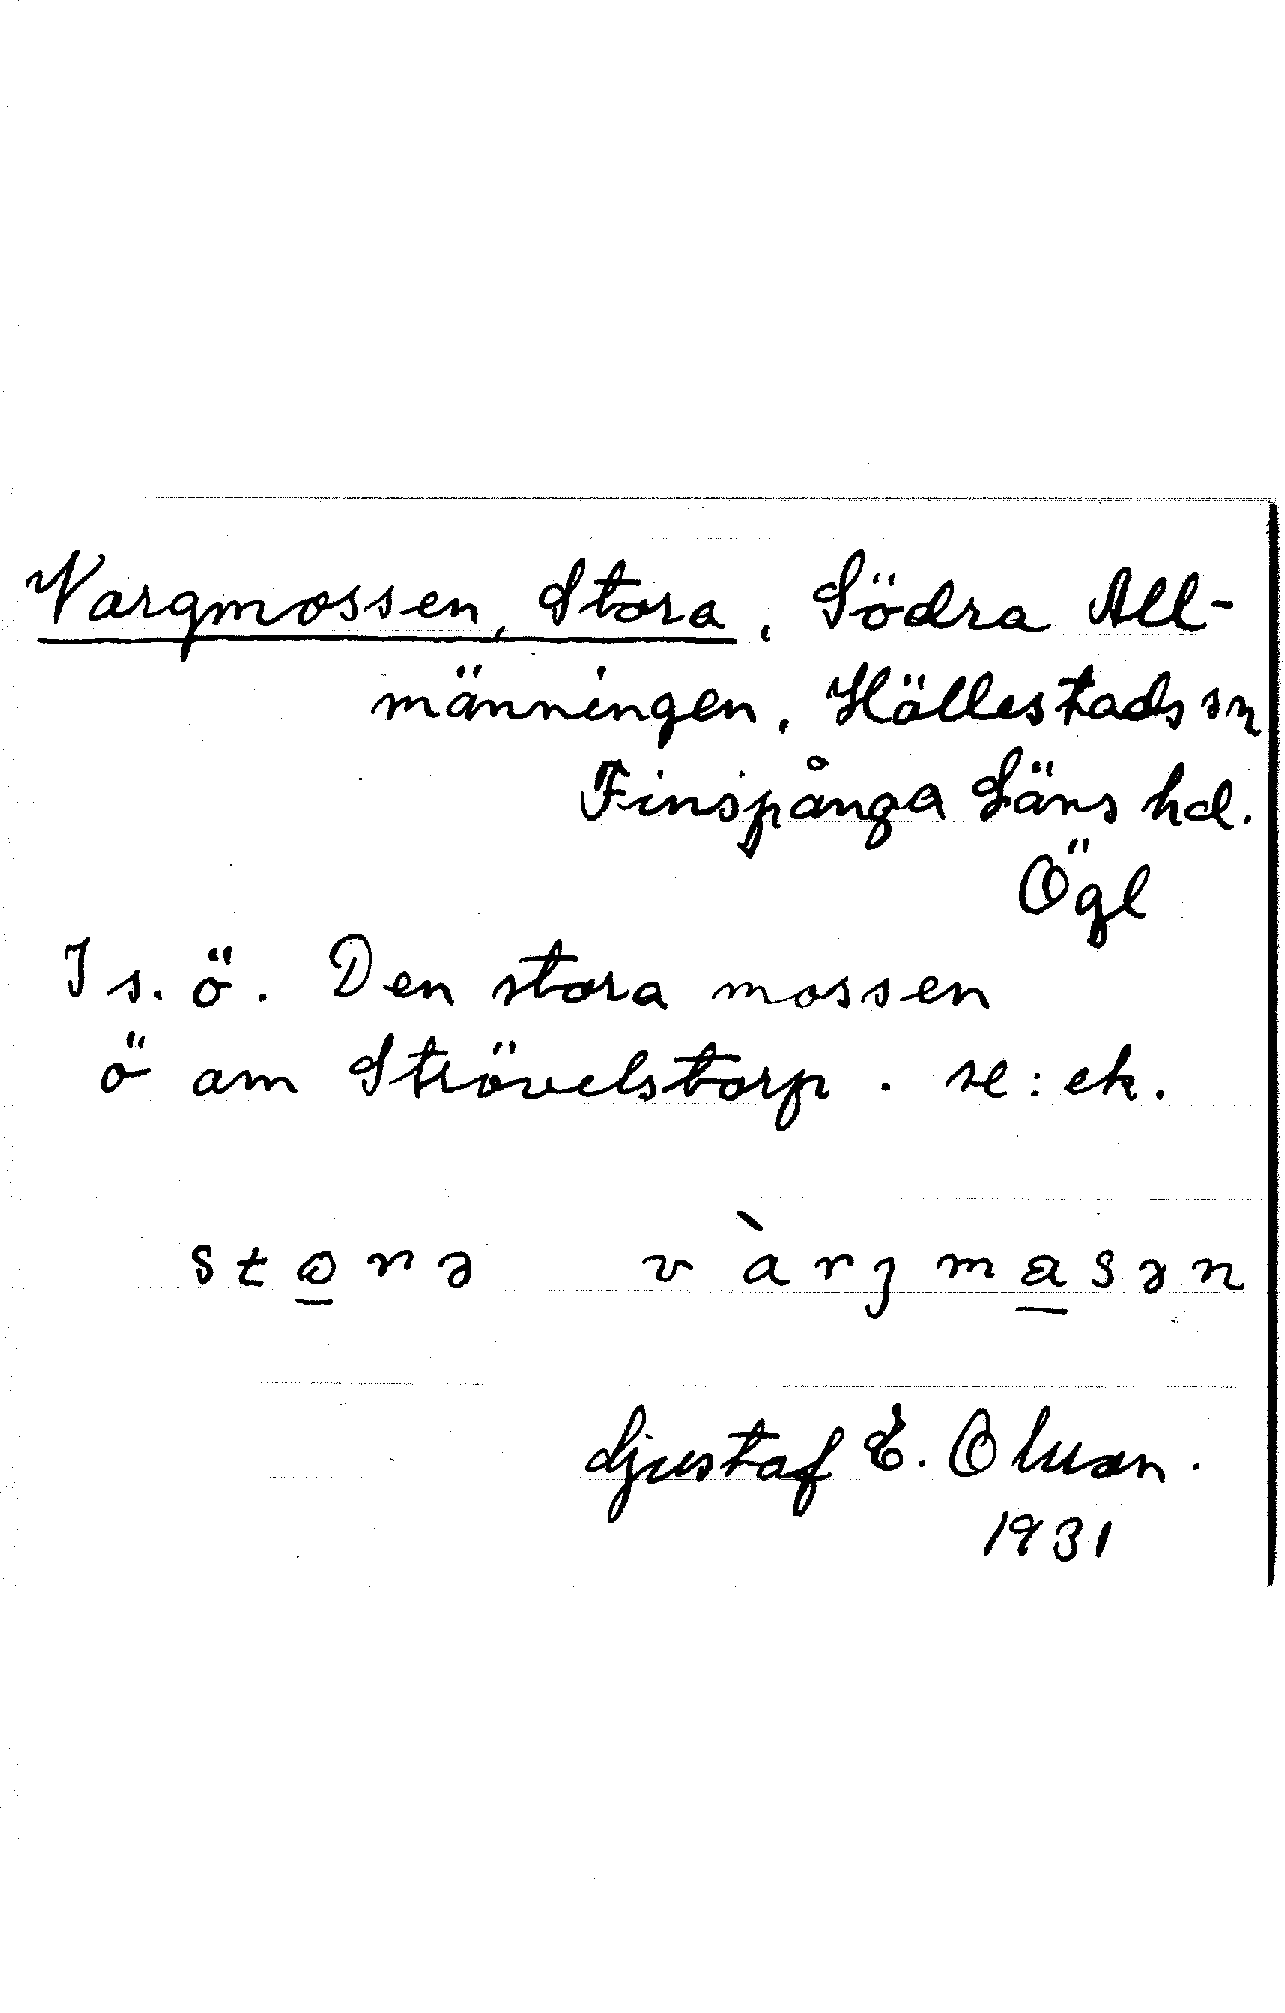 Vargmossen, Stora, Södra All-
männingen, Hällestads sn
Finspånga Läns hd.
Ögl
I s. ö. Den stora mossen
ö om Strövelstorp. se: ek.
storə vàrjmasən
Gustaf E. Olsson.
1931